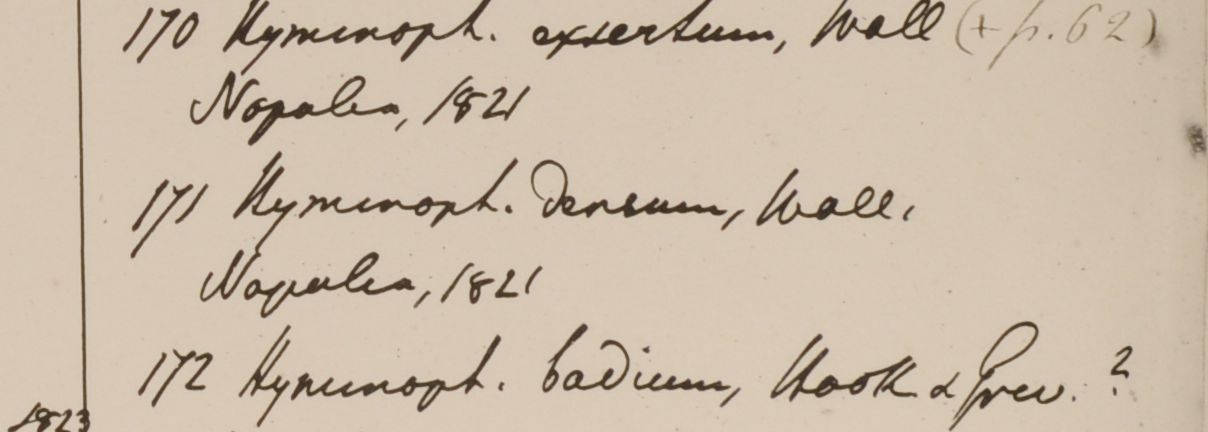 170 Hymenoph. exsertum, Wall (+ p. 62)
Napalia, 1821
171 Hymenoph. densum, Wall.
Napalia, 1821
172 Hymenoph. badium, Hook & Grev. ?
1823